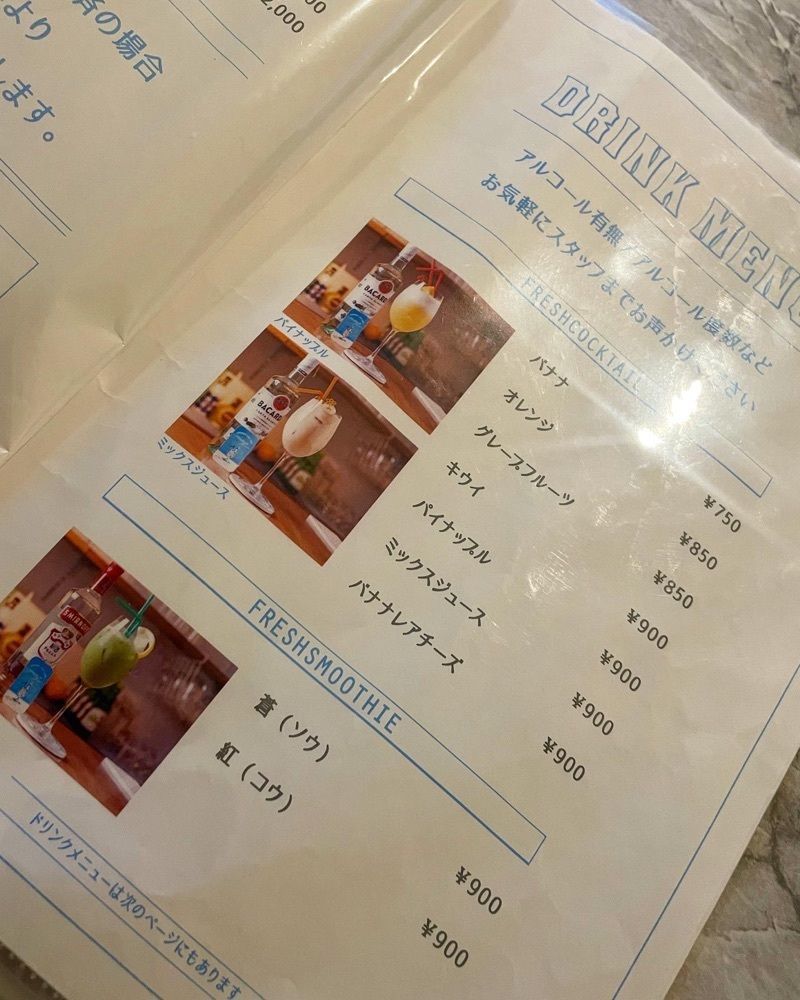 00
2,000
済の場合
より
します。
DRINK MENU
アルコール有無 アルコール度数など
お気軽にスタッフまでお声かけ ださい
FRESHCOCKTAIL
バナナ ¥750
オレンジ ¥850
グレープフルーツ ¥850
キウイ ¥900
パイナップル ¥900
ミックスジュース ¥900
バナナレアチーズ ¥900
BACARDI
パイナップル
BACARDI
ミックスジュース
FRESHSMOOTHIE
蒼（ソウ） ¥900
紅（コウ） ¥900
SMIRNOFF
ドリンクメニューは次のページにもあります